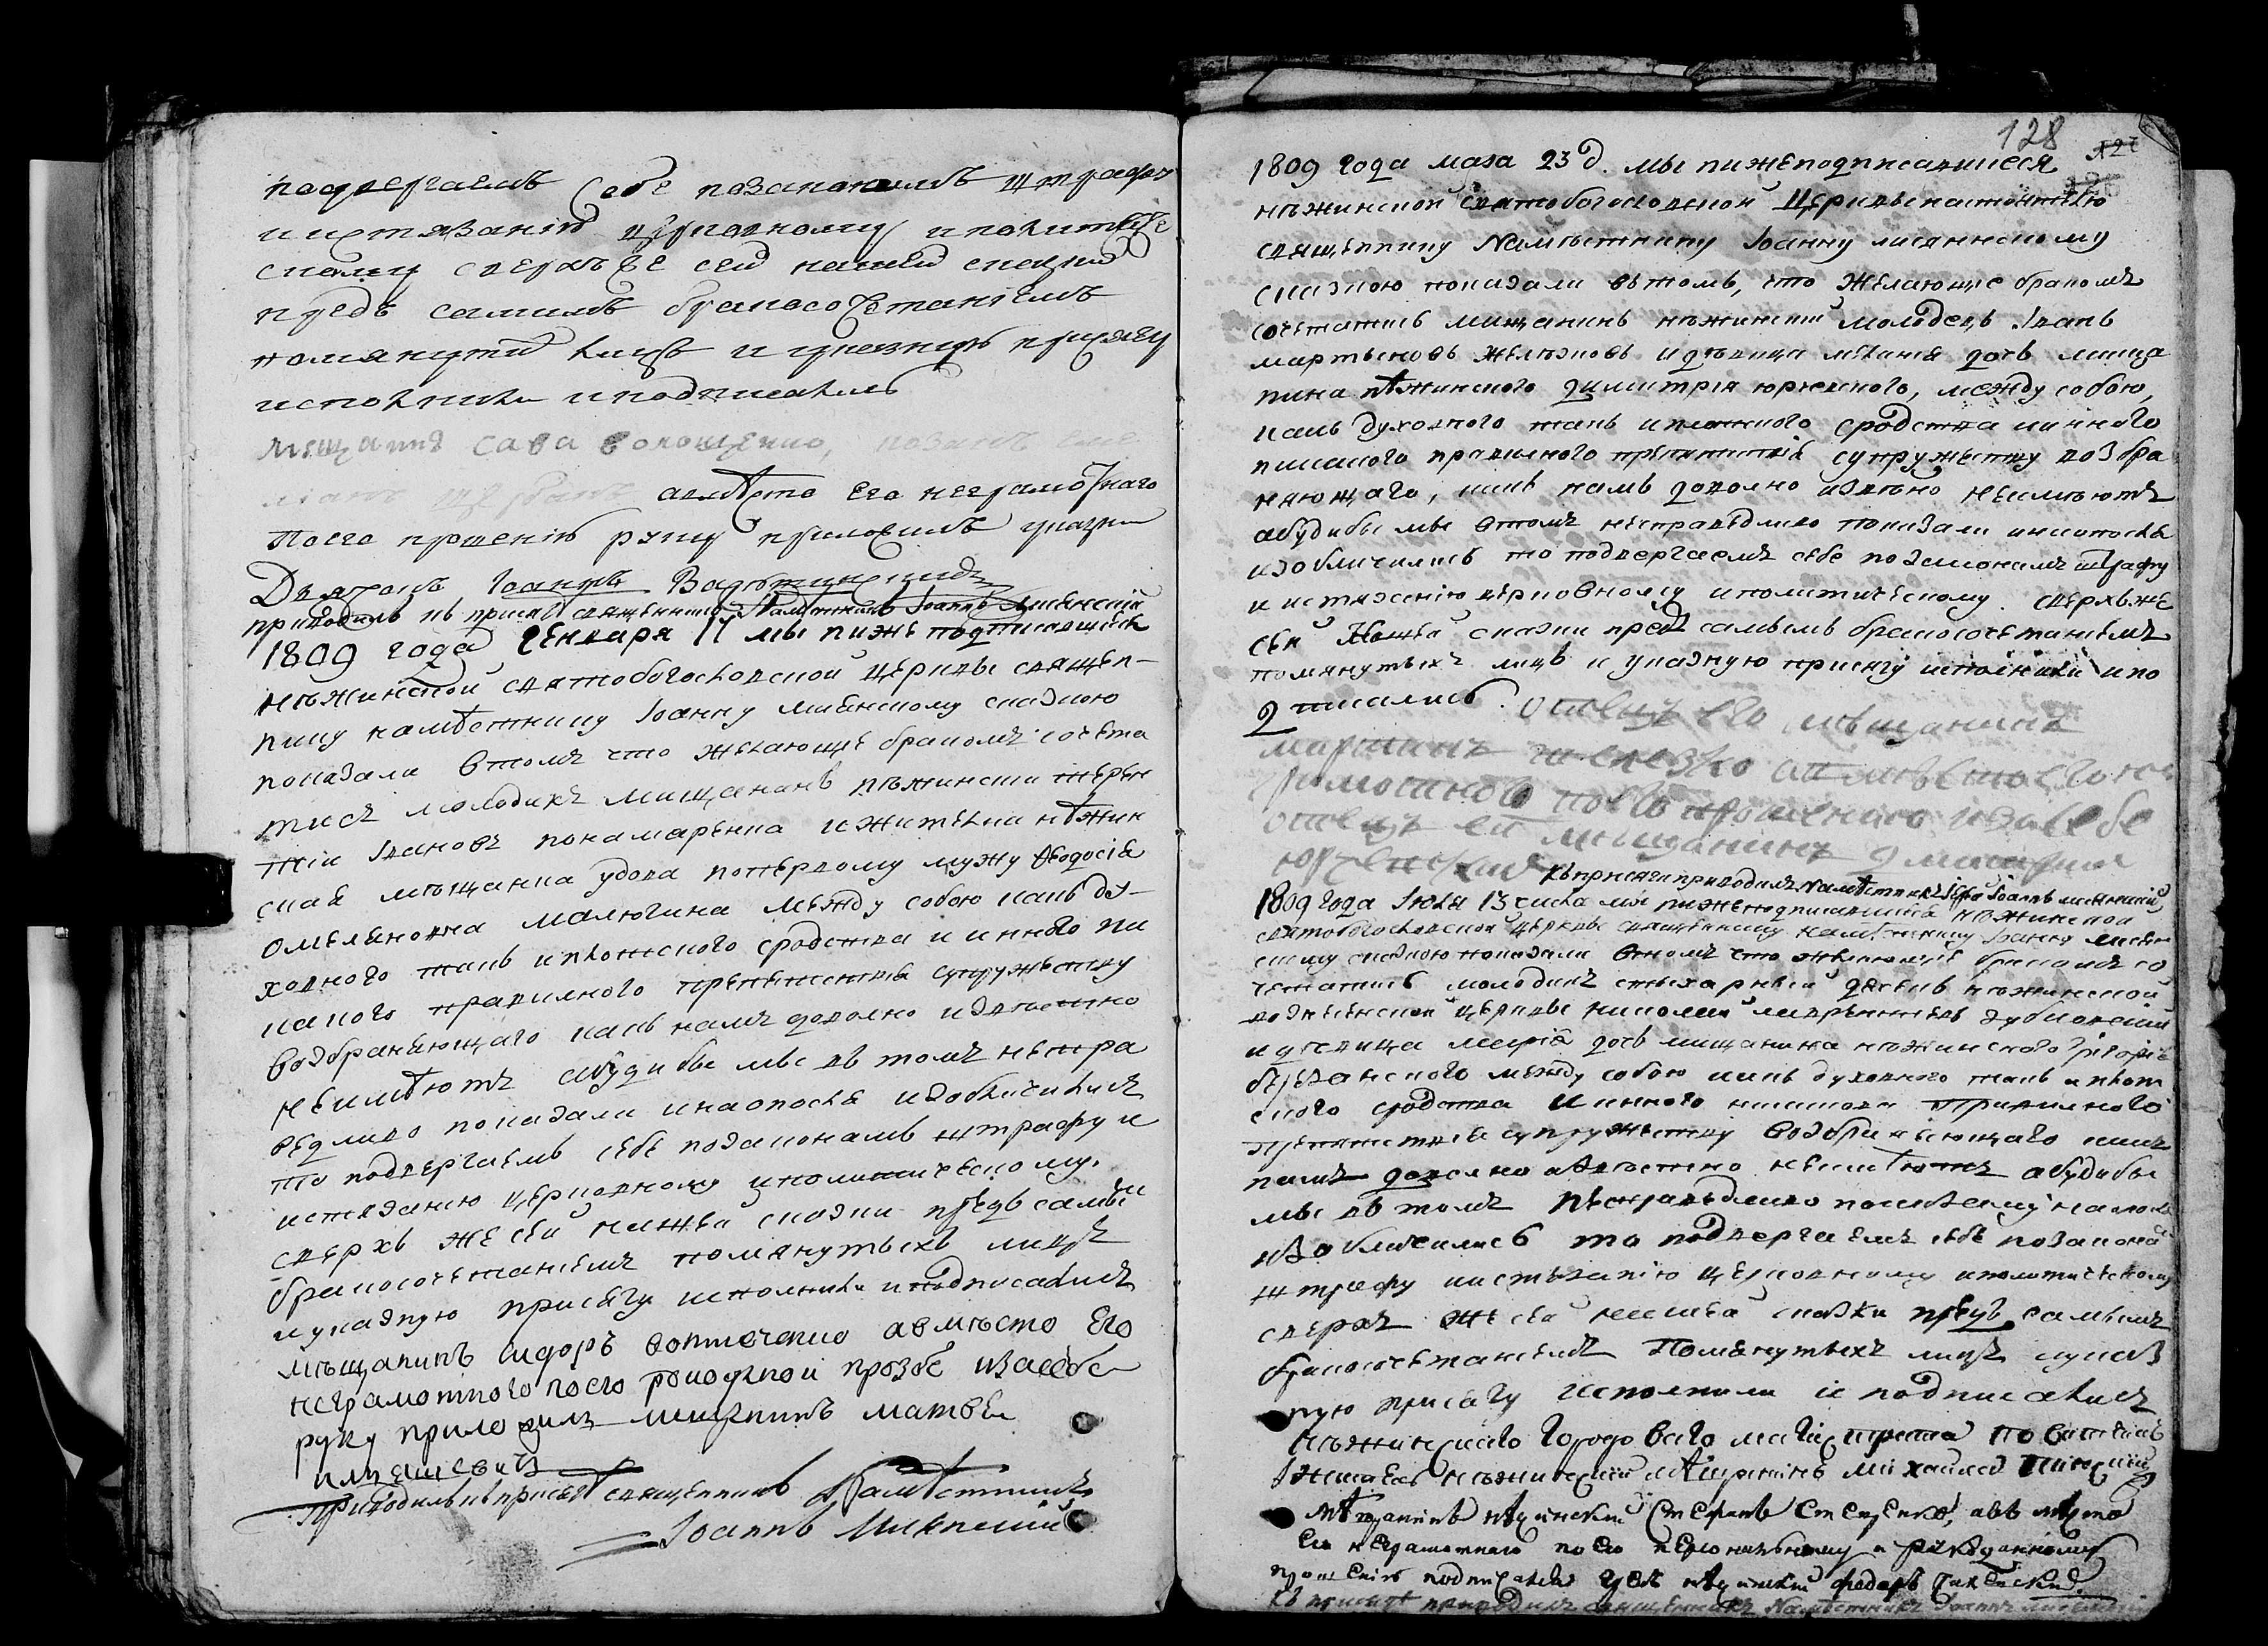 подвергаемъ себе позаконамъ штрафу
и истязанію церковному и политиче
скому сверхъ же сей нашей скаски
предъ самимъ бракосочетаніемъ
помянутий лицъ и указную присягу
исполнили и подписались
мещанинъ Сава
авместо его неграмотнаго
поего прошенію руку приложилъ
Дияконъ Іоаннъ
приводилъ къ присягѣ священникъ Намѣстникъ Іоаннъ
1809 года генваря 17 мы ниже подписавшися
нѣжинской святобогословской церкви священ-
нику намѣстнику Іоанну сказкою
показали втомъ что желающие бракомъ сочета
тися молодикъ мищанинъ нѣжинскии терен
тии Ивановъ понамаренка и жителка нѣжин
ская мѣщанка удова попервому мужу Феодосія
Омеляновна малюгина между собою какъ ду-
ховного такъ и плотского сродства и инного ни
какого правилного препятствія супружеству
возбраняющаго какъ намъ доволно извѣстно
неимѣютъ абудибы мы въ томъ неспра
ведливо показали инаопосля изобличилися
то подвергаемъ себе позаконамъ штрафу и
истязанию церковному и политическому.
сверхъ же сей нашей сказки предъ самым
бракосочетаніемъ помянутыхъ лицъ
и указную присягу исполнили и подписались
мѣщанинъ Сидоръ авмѣсто его
неграмотного поего рукоданой прозбе изасебе
руку приложилъ мищанинъ матвей
приводилъ къ присягѣ священникъ Намѣстникъ
Іоаннъ
128
1809 года маія 23 д. мы нижеподписавшиеся
нѣжинской святобогословской церкви настоятелю
священнику Намѣстнику Іоанну
сказкою показали въ томъ, что желающие бракомъ
сочетатись мищанинъ нѣжинский молодецъ Іванъ
мартыновъ желѣзновъ и дѣвица меланія дочь мища
нина нѣжинского димитрія юревского, между собою,
какъ духовного такъ и плотского сродства и инного
никакого правилного препятствія супружеству возбра
няющаго, какъ намъ доволно извѣсно неимѣютъ
абудибы мы втомъ несправедливо показали инаопосля
изобличились то подвергаемъ себе позаконамъ штрафу
и истязению церковному и политическому. сверхъ же
сей нашей сказки предъ самымъ бракосочетаниемъ
помянутыхъ лицъ и указную присягу исполнили и по
дписались. отецъ его мѣщанинъ
мартинъ авмѣсто его не
грамотного поего прошению изасебе
отецъ ей мещанинъ дмитрий
къ присяги приводилъ Намѣстникъ Іерей Іоаннъ
1809 года Іюля 13 числа мы нижеподписавшися нѣжинской
святобогословской церкви священнику намѣстнику Іоанну
скому сказкою показали втомъ что желающие бракомъ со
четатись молодикъ стихарный дячокъ нѣжинской
вознесенской церкви николай
и дѣвица марія дочь мищанина нѣжинского Григорія
между собою какъ духовного такъ и плот
ского сродства и инного никакова правилного
препятствія супружеству возбраняющаго какъ
намъ доволно извѣстно неимѣютъ абудибы
мы въ томъ несправедливо
изобличились то подвергаемъ себе позакона
штрафу и истязанію церковному и политическому
сверхъ же сей нашей сказки предъ самымъ
бракосочетаниемъ помянутыхъ лицъ и указ
ную присягу исполнили и подписались
нѣжинскаго городоваго магистрата
нѣжинский мѣщанинъ михайла
мѣщанинъ нѣжинский Стефанъ авъ мѣсто
его неграмотнаго по его персональному и рукоданному
прошенію подписался нѣжинский федоръ
къ присягѣ приводилъ священникъ Намѣстникъ Іоаннъ